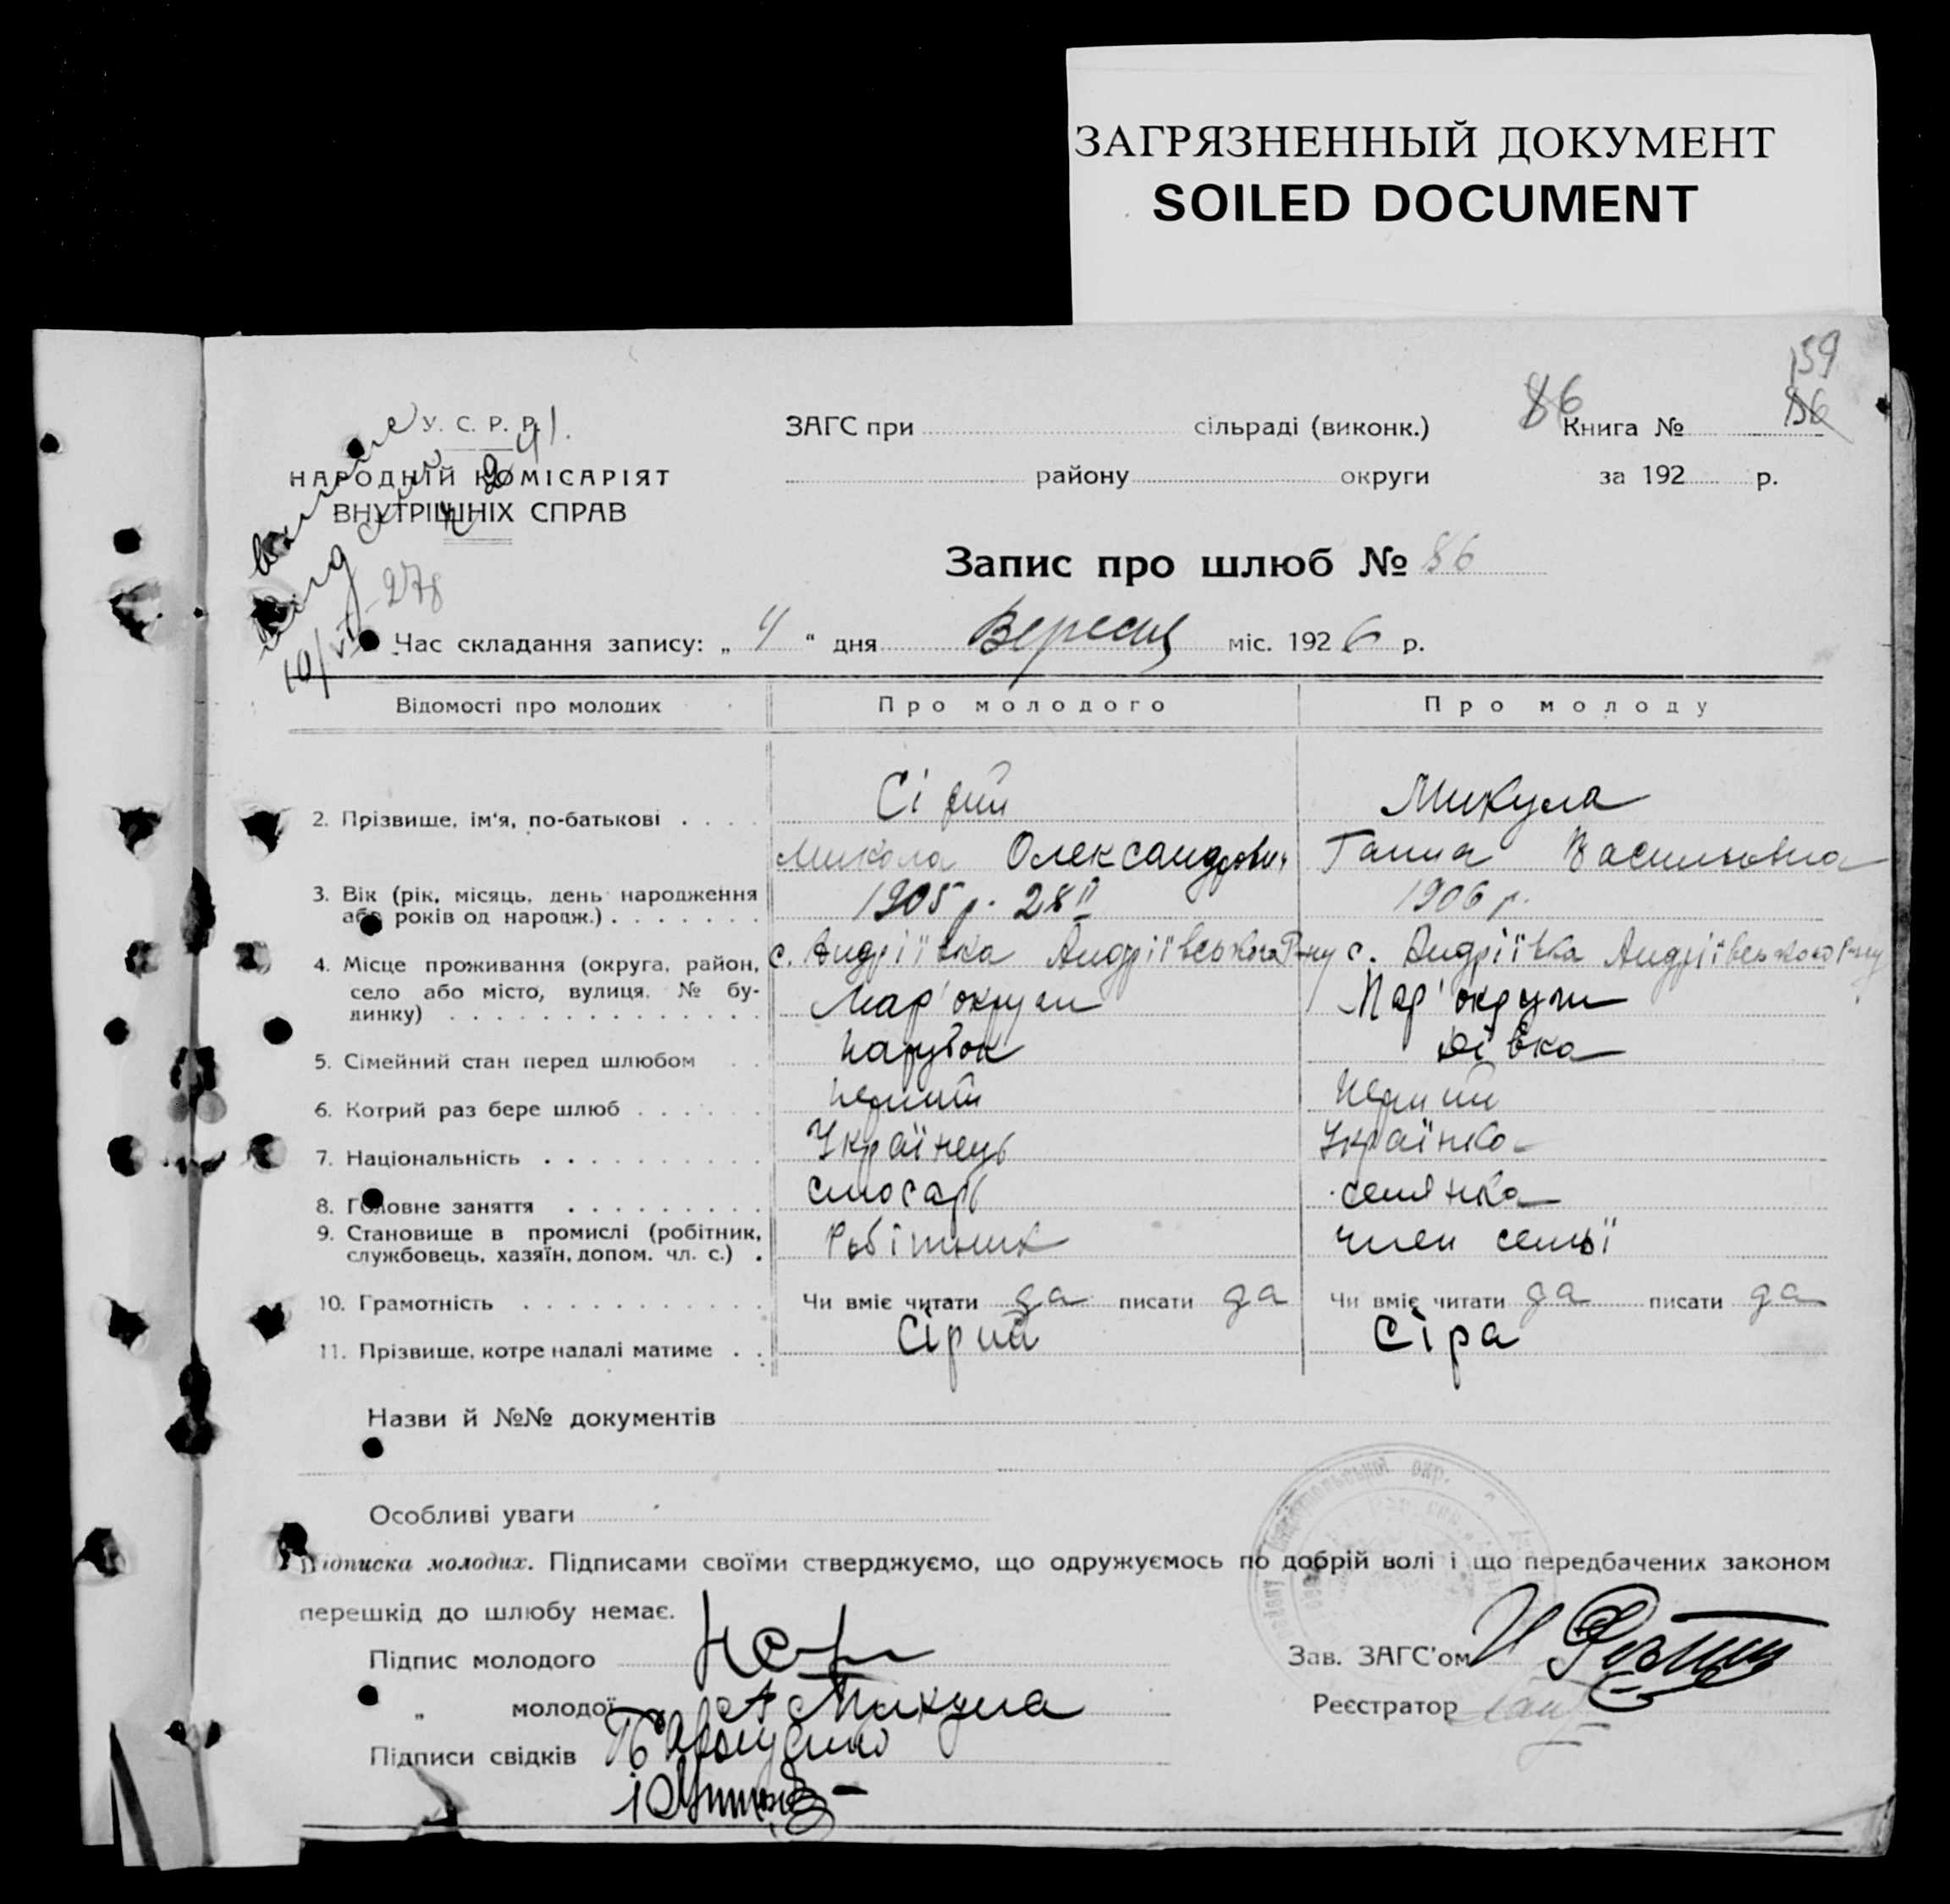 ЗАГРЯЗНЕННЫЙ ДОКУМЕНТ
SOILED DOCUMENT
159
86
У. С. Р. Р.
НАРОДНІЙ КОМІСАРІЯТ
ВНУТРІШНІХ СПРАВ
ЗАГС при сільраді (виконк.)
району округи
86 Книга №
за 192 р.
278
Запис про шлюб № 86
Час складання запису: „ 4 “ дня Вересня міс. 1926 р.
Відомості про молодих Про молодого Про молоду
2. Прізвище, ім'я, по-батькові Сірий Микула
Микола Олександрович Ганна Васильовна
3. Вік (рік, місяць, день народження або років од народж.) 1905 р. 28 II 1906 р.
4. Місце проживання (округа, район, с. Андріївка Андріївського Р-ну с. Андріївка Андріївського Р-ну
село або місто, вулиця, № будинку) Мар'округи Мар'округи
5. Сімейний стан перед шлюбом парубок дівка
6. Котрий раз бере шлюб перший перший
7. Національність Українець Українка
8. Головне заняття слюсарь селянка
9. Становище в промислі (робітник, службовець, хазяїн, допом. чл. с.) Робітник член семьї
10. Грамотність Чи вміє читати да писати да Чи вміє читати да писати да
11. Прізвище, котре надалі матиме Сірий Сіра
Назви й №№ документів
Особливі уваги
Підписка молодих. Підписами своїми стверджуємо, що одружуємось по добрій волі і що передбачених законом
перешкід до шлюбу немає.
Підпис молодого
„ молодої А Микула
Підписи свідків
Зав. ЗАГС'ом
Реєстратор